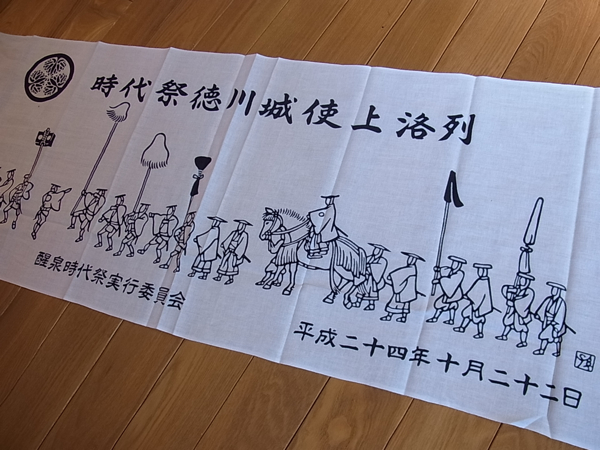 時代祭徳川城使上洛列
醒泉時代祭実行委員会
平成二十四年十月二十二日